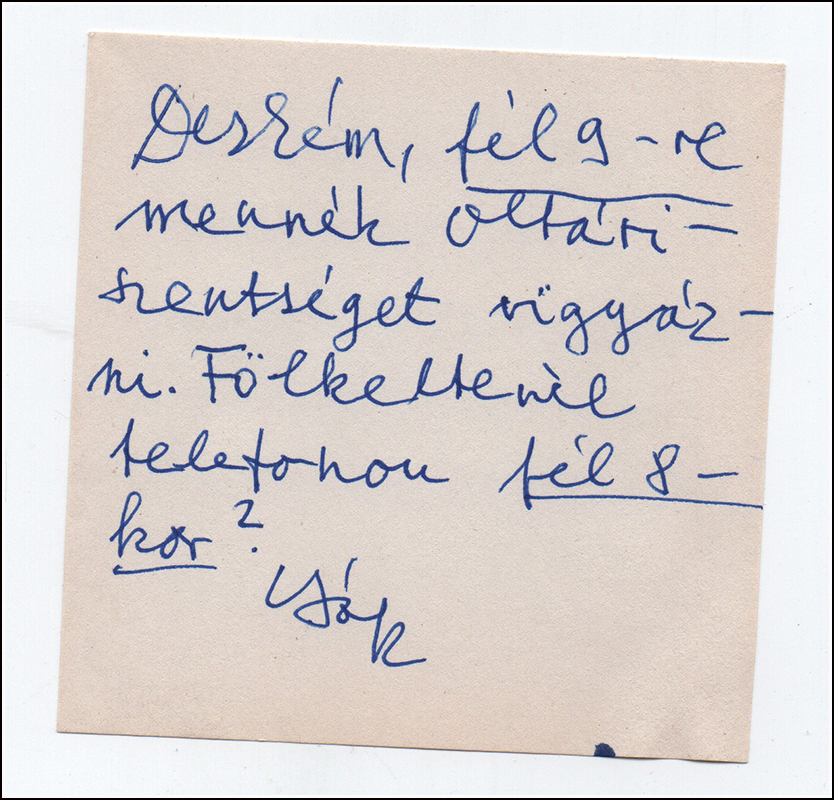 Deszkém, fél 9-re
mennék oltári-
szentséget vigyáz-
ni. Fölkeltenél
telefonon fél 8-
kor?